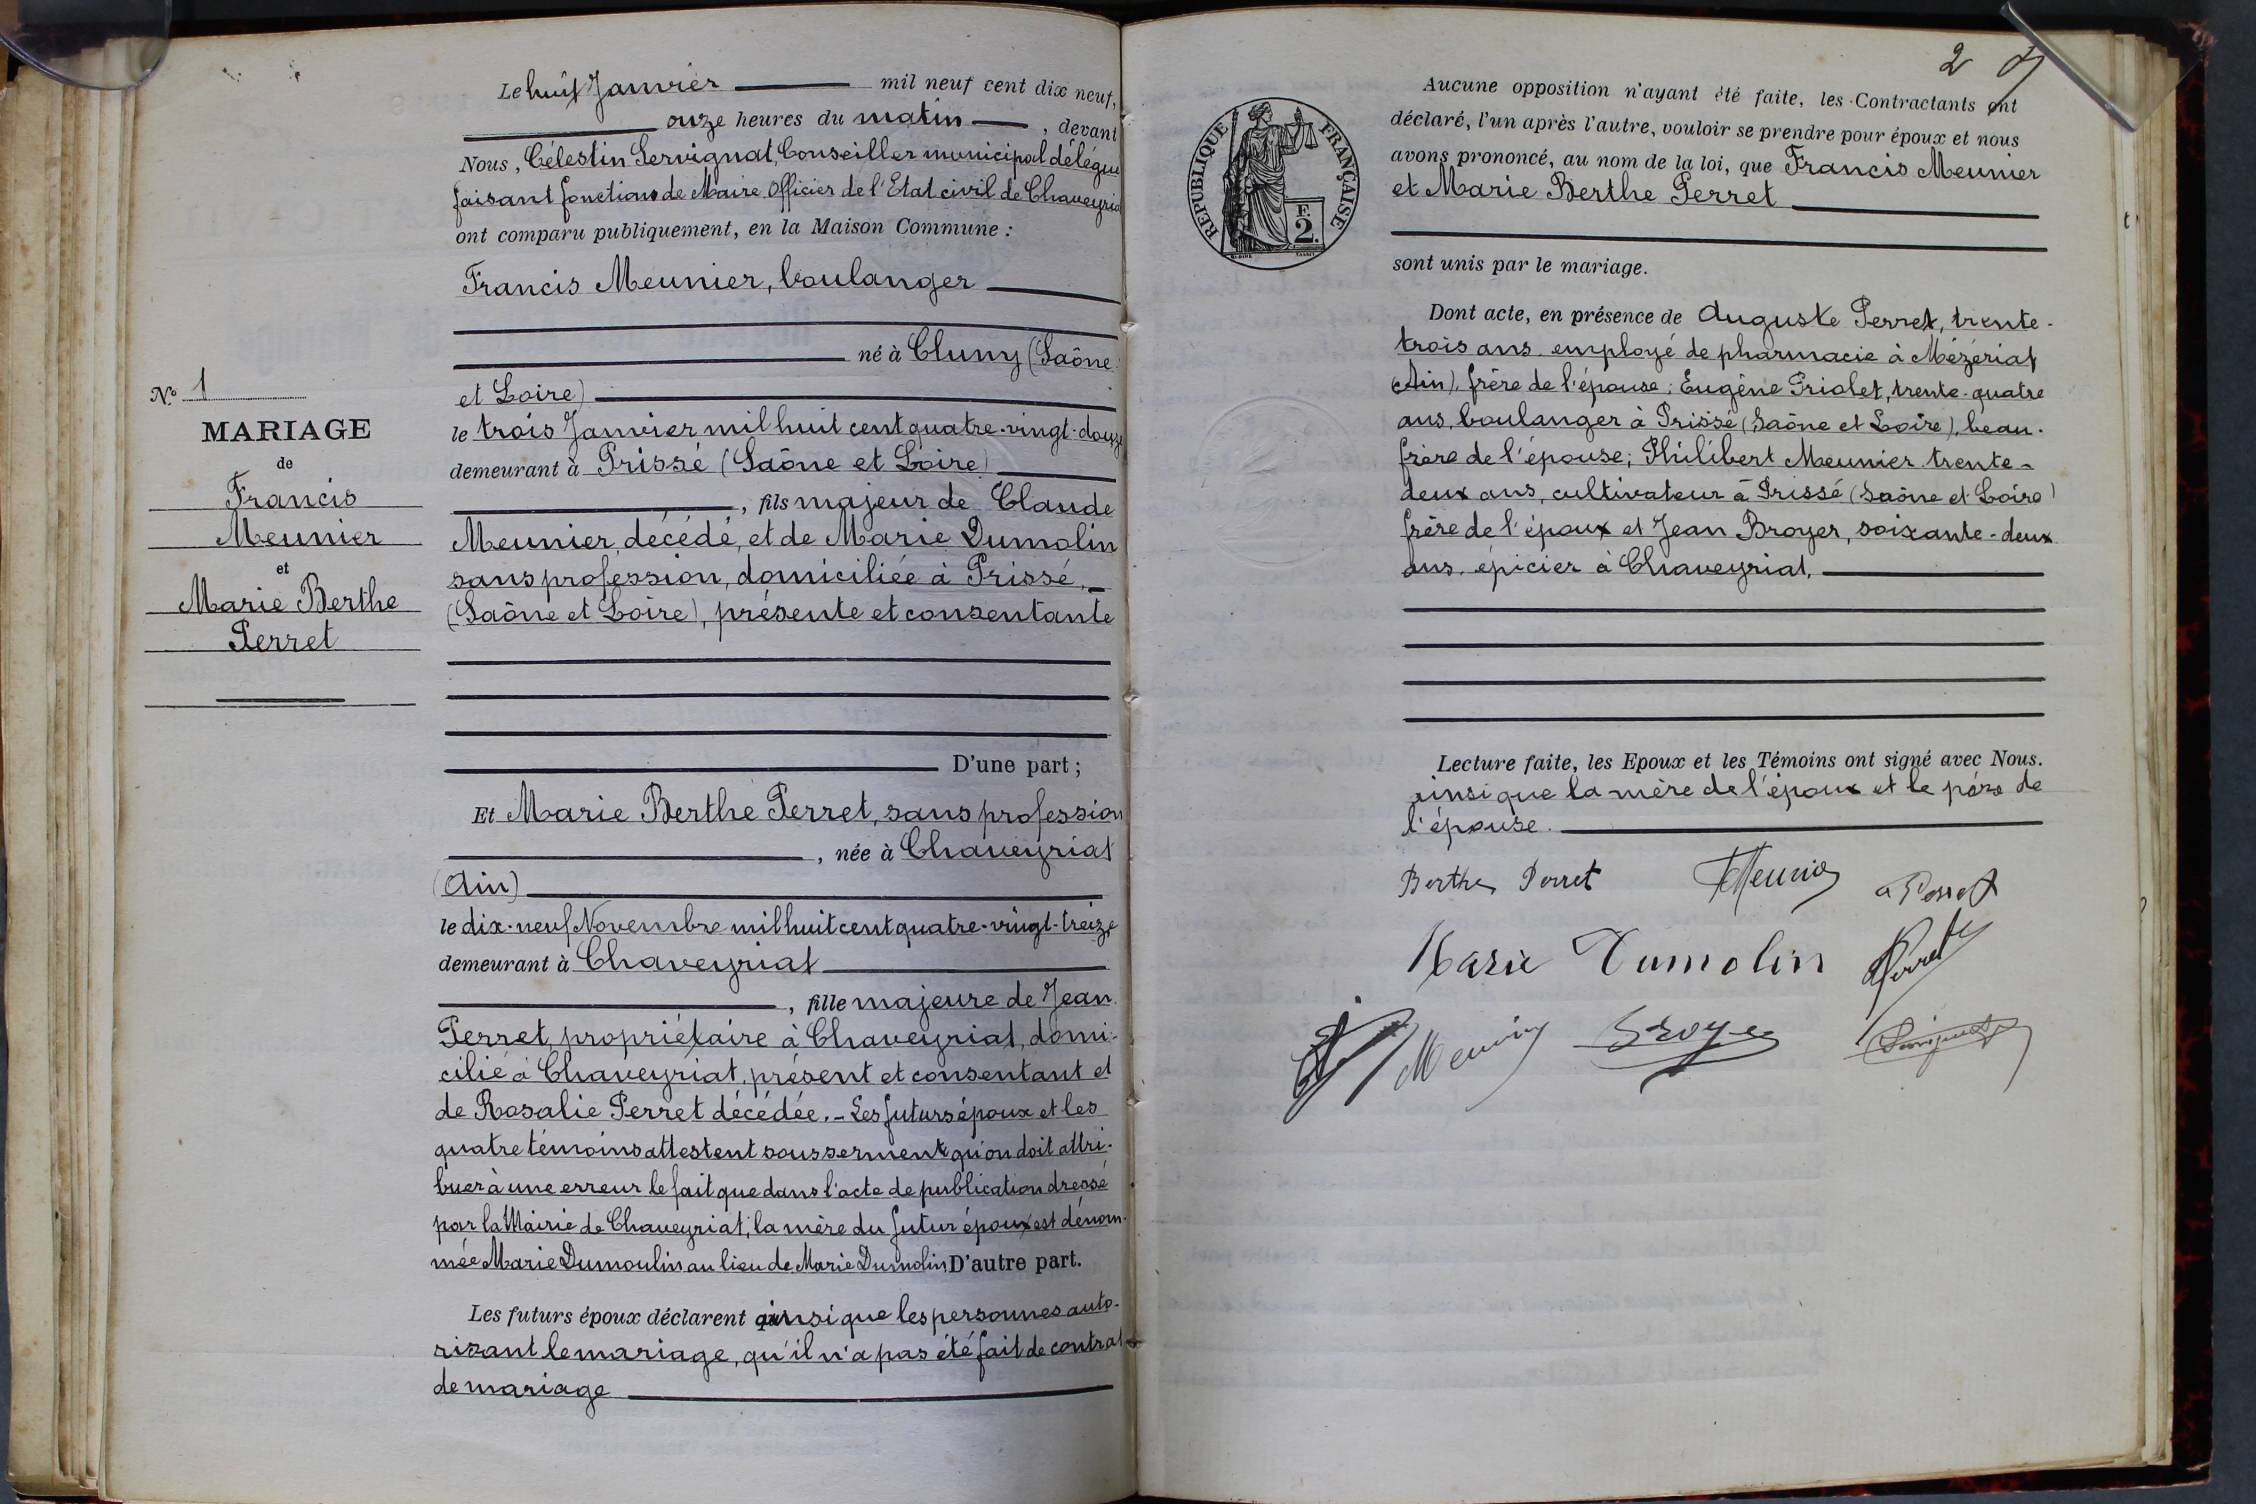 Le huit Janvier mil neuf cent dix neuf,
onze heures du matin, devant
Nous, Célestin Servignat, Conseiller municipal délégué
faisant fonctions de Maire Officier de l'Etat civil de Chaveyriat
ont comparu publiquement, en la Maison Commune :
Francis Meunier, boulanger
né à Cluny (Saône
et Loire)
le trois Janvier mil huit cent quatre-vingt-douze
demeurant à Prissé (Saône et Loire)
, fils majeur de Claude
Meunier, décédé, et de Marie Dumolin
sans profession, domiciliée à Prissé,
(Saône et Loire), présente et consentante
D'une part ;
N° 1
MARIAGE
de
Francis
Meunier
et
Marie Berthe
Perret
Et Marie Berthe Perret, sans profession
, née à Chaveyriat
(Ain)
le dix-neuf Novembre mil huit cent quatre-vingt-treize
demeurant à Chaveyriat
, fille majeure de Jean
Perret, propriétaire à Chaveyriat, domi-
cilié à Chaveyriat, présent et consentant et
de Rosalie Perret décédée. - Les futurs époux et les
quatre témoins attestent sous serment qu'on doit attri-
buer à une erreur le fait que dans l'acte de publication dressé
par la Mairie de Chaveyriat, la mère du futur époux est dénom-
mée Marie Dumoulin au lieu de Marie Dumolin D'autre part.
Les futurs époux déclarent ainsi que les personnes auto-
risant le mariage, qu'il n'a pas été fait de contrat
de mariage
2
RÉPUBLIQUE FRANÇAISE
F.
2.
Aucune opposition n'ayant été faite, les Contractants ont
déclaré, l'un après l'autre, vouloir se prendre pour époux et nous
avons prononcé, au nom de la loi, que Francis Meunier
et Marie Berthe Perret
sont unis par le mariage.
Dont acte, en présence de Auguste Perret, trente-
trois ans, employé de pharmacie à Mézériat
(Ain), frère de l'épouse ; Eugène Priolet, trente-quatre
ans, boulanger à Prissé (Saône et Loire), beau-
frère de l'épouse ; Philibert Meunier trente-
deux ans, cultivateur à Prissé (Saône et Loire)
frère de l'époux et Jean Broyer, soixante-deux
ans, épicier à Chaveyriat,
Lecture faite, les Epoux et les Témoins ont signé avec Nous.
ainsi que la mère de l'époux et le père de
l'épouse.
Berthe Perret Meunier a Perret
Marie Dumolin Perret
Meunier Broyer